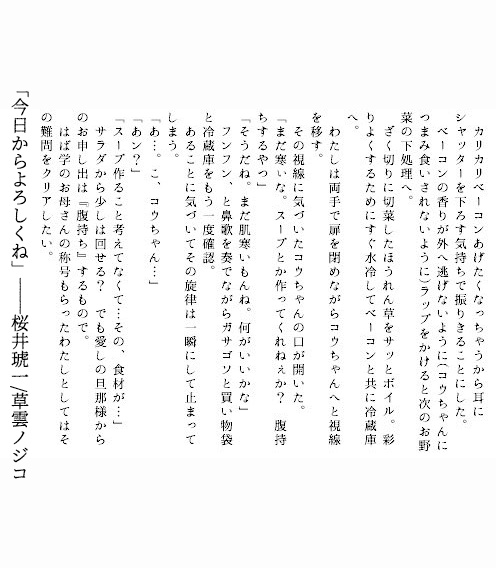 カリカリベーコンあげたくなっちゃうから耳に
シャッターを下ろす気持ちで振りきることにした。
ベーコンの香りが外へ逃げないように(コウちゃんに
つまみ食いされないように)ラップをかけると次のお野
菜の下処理へ。
ざく切りに切菜したほうれん草をサッとボイル。彩
りよくするためにすぐ水冷してベーコンと共に冷蔵庫
へ。
わたしは両手で扉を閉めながらコウちゃんへと視線
を移す。
その視線に気づいたコウちゃんの口が開いた。
「まだ寒いな。スープとか作ってくれねぇか? 腹持
ちするやつ」
「そうだね。まだ肌寒いもんね。何がいいかな」
フンフン、と鼻歌を奏でながらガサゴソと買い物袋
と冷蔵庫をもう一度確認。
あることに気づいてその旋律は一瞬にして止まって
しまう。
「あ…。こ、コウちゃん…」
「あン?」
「スープ作ること考えてなくて…その、食材が…」
サラダから少しは回せる? でも愛しの旦那様から
のお申し出は『腹持ち』するもので。
はば学のお母さんの称号もらったわたしとしてはそ
の難問をクリアしたい。
「今日からよろしくね」――桜井琥一/草雲ノジコ